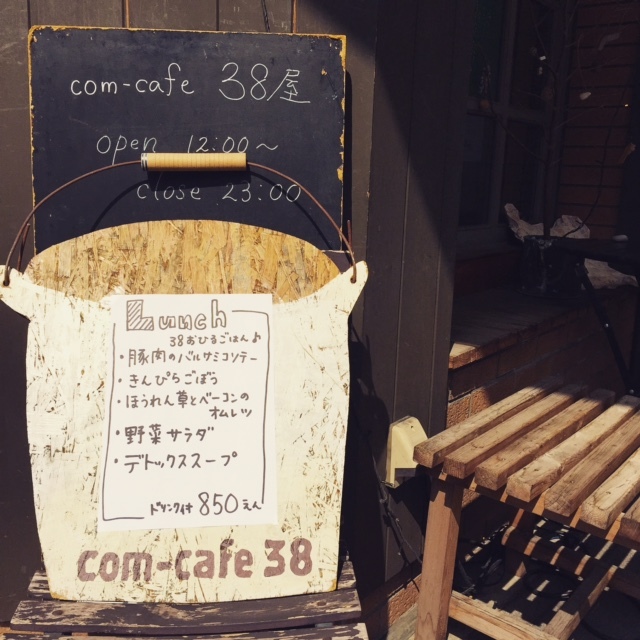 com-cafe 38屋
open 12:00～
close 23:00
Lunch
38おひるごはん♪
・豚肉のバルサミコソテー
・きんぴらごぼう
・ほうれん草とベーコンの
オムレツ
・野菜サラダ
・デトックススープ
ドリンク付 850えん
com-cafe 38